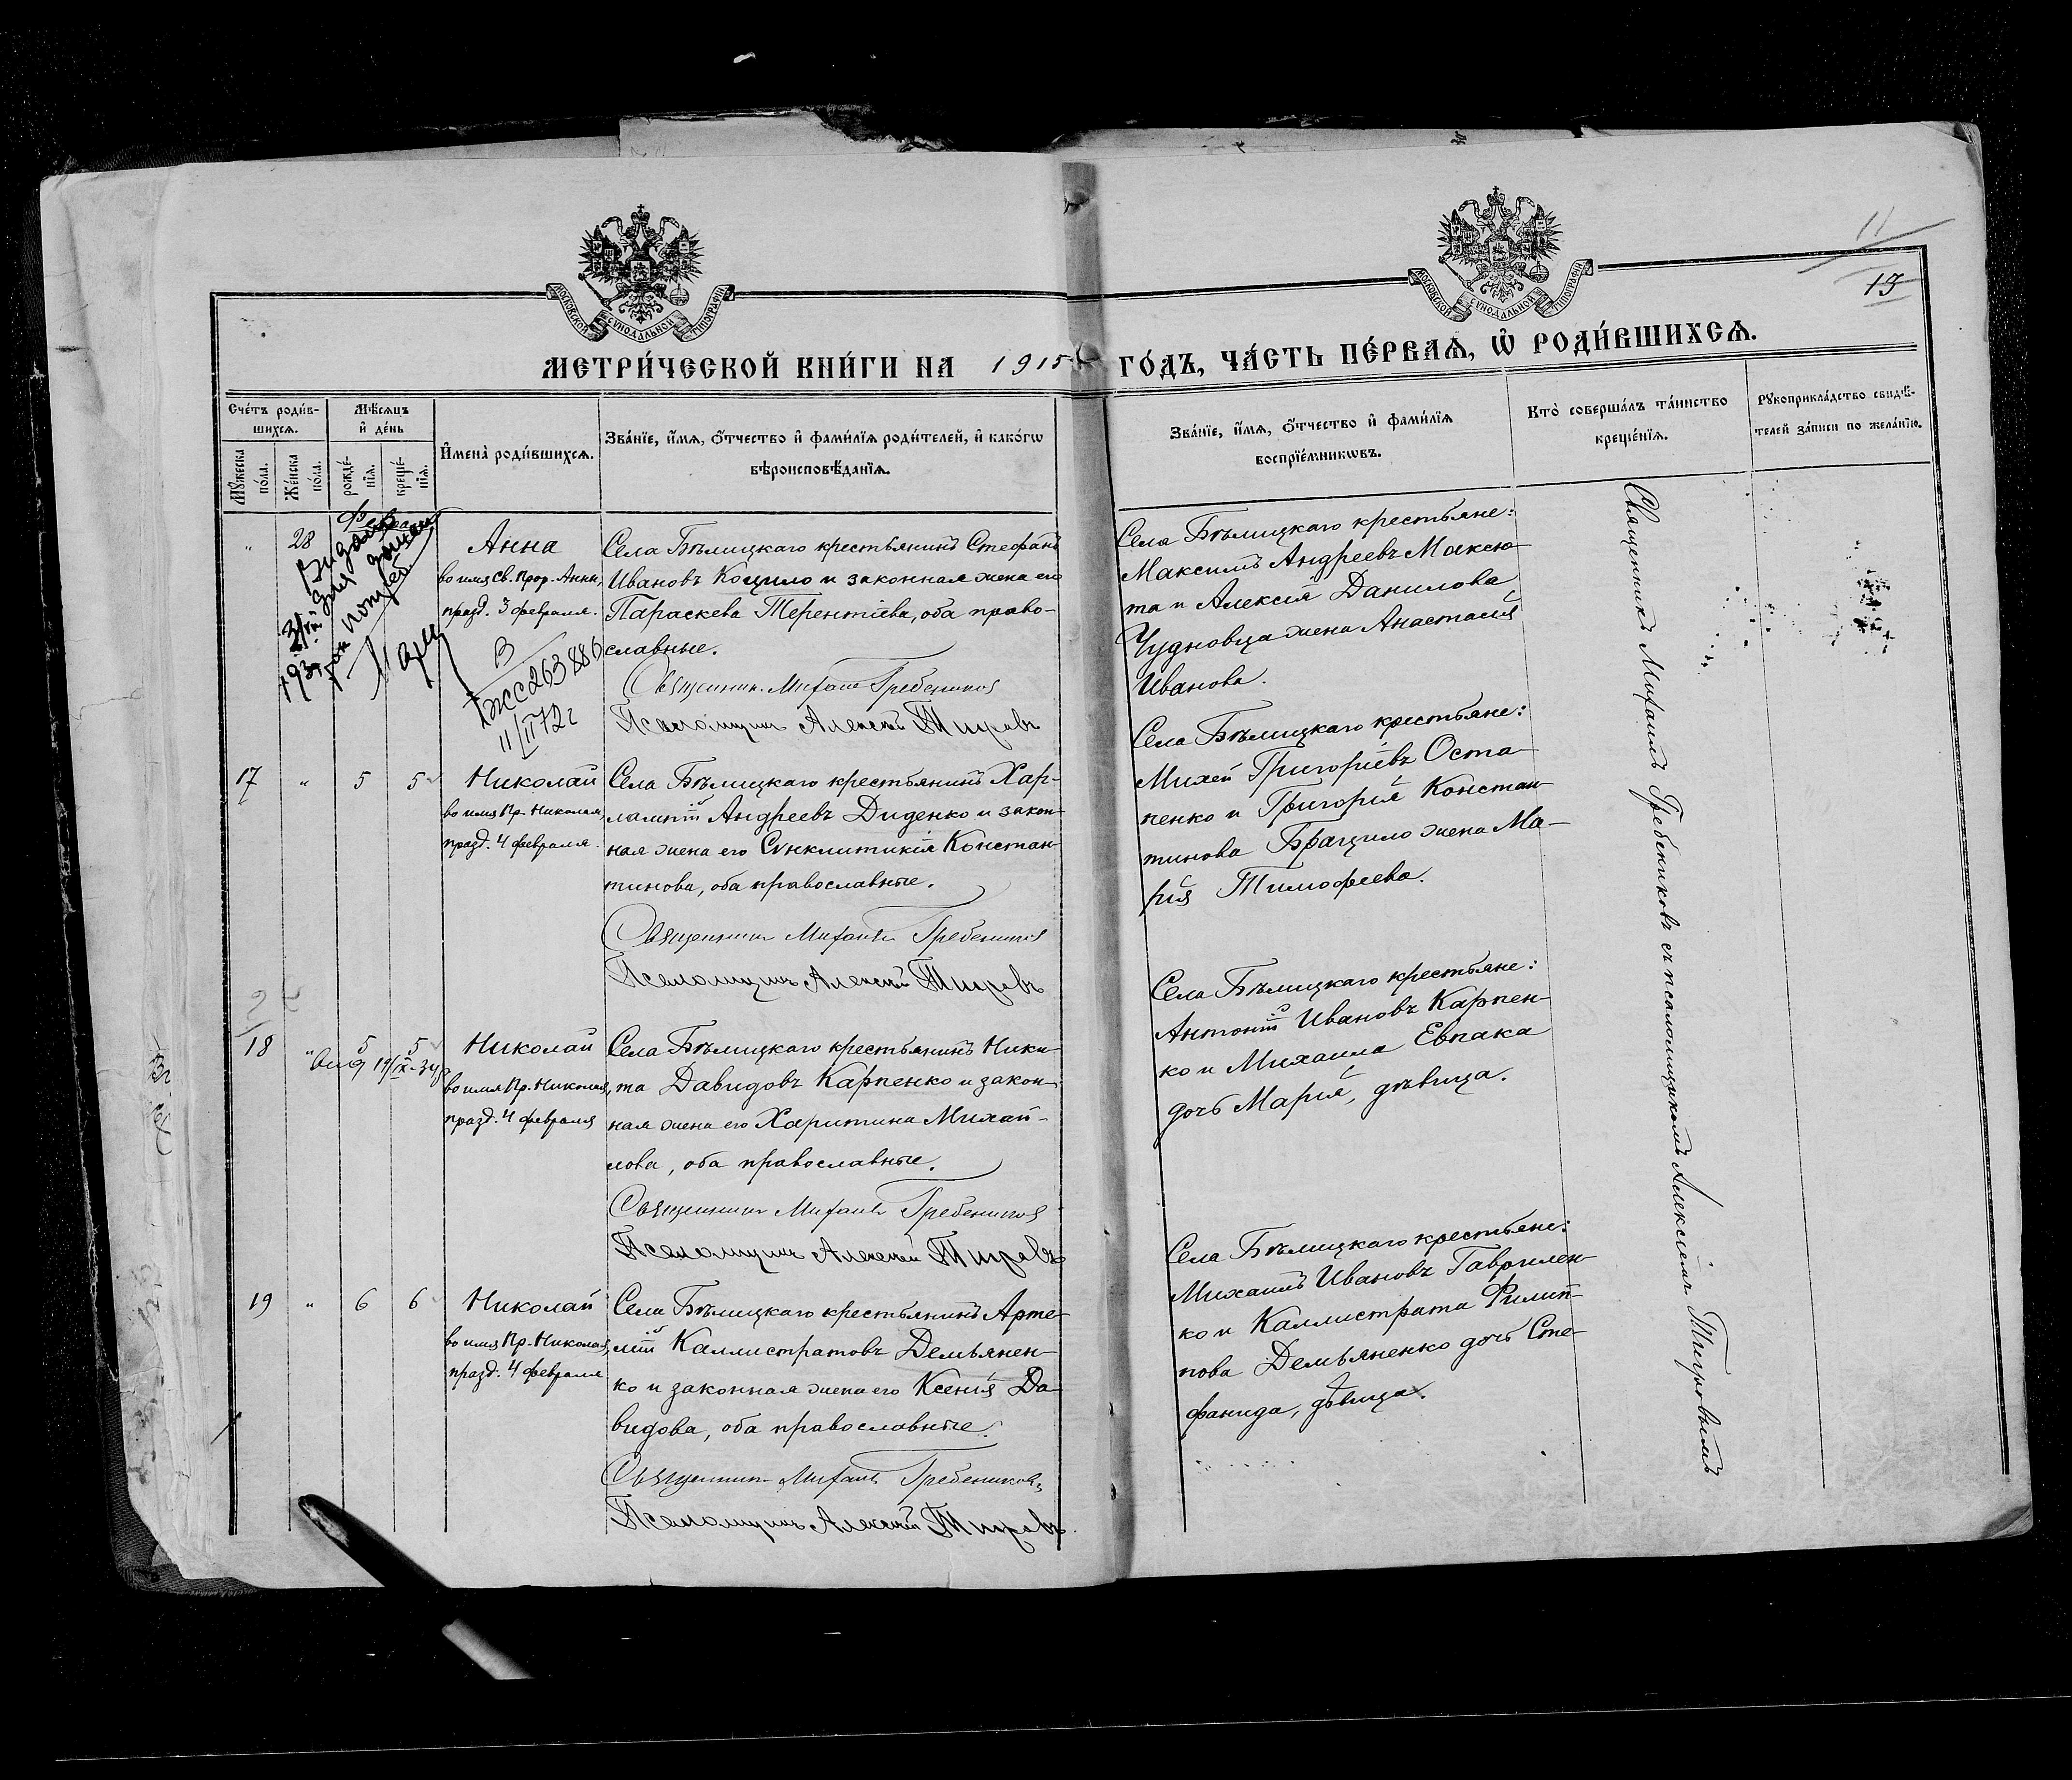 МОСКОВСКОЙ СѴНОДАЛЬНОЙ ТИПОГРАФІИ
МОСКОВСКОЙ СѴНОДАЛЬНОЙ ТИПОГРАФІИ
11
13
МЕТРИ́ЧЕСКОЙ КНИ́ГИ НА 1915 ГО́ДЪ, ЧА́СТЬ ПЕ́РВАѦ, Ѡ҆ РОДИ́ВШИХСѦ.
Сче́тъ роди́в-
шихсѧ.
Мꙋ́жеска по́ла.
Же́нска по́ла.
Мѣ́сѧцъ
и҆ де́нь
рожде́-
нїѧ.
креще́-
нїѧ.
И҆мена̀ роди́вшихсѧ.
Зва́нїе, и҆́мѧ, ѻ҆́тчество и҆ фами́лїѧ роди́телей, и҆ како́гѡ
вѣроисповѣ́данїѧ.
Зва́нїе, и҆́мѧ, ѻ҆́тчество и҆ фами́лїѧ
воспрїе́мникѡвъ.
Кто̀ соверша́лъ та́инство
креще́нїѧ.
Рꙋкоприкла́дство свидѣ́-
телей за́писи по жела́нїю.
" 28
Анна
во имя Св. Прор. Анны,
празд. 3 февраля.
Села Бѣлицкаго крестьянинъ Стефанъ
Ивановъ Коцило и законная жена его
Параскева Терентіева, оба право-
славные.
Священник Михаил Гребеников
Псаломщикъ Алексѣй Тигровъ
Села Бѣлицкаго крестьяне:
Максимъ Андреевъ Максю-
та и Алексія Данилова
Чудновца жена Анастасія
Иванова.
263886
11/II 72 г
17 " 5 5
Николай
во имя Пр. Николая,
празд. 4 февраля.
Села Бѣлицкаго крестьянинъ Хар-
лампій Андреевъ Диденко и закон-
ная жена его Сѵнклитикія Констан-
тинова, оба православные.
Священник Михаил Гребеников
Псаломщикъ Алексѣй Тигровъ
Села Бѣлицкаго крестьяне:
Михей Григоріевъ Оста-
пенко и Григорія Констан-
тинова Брацило жена Ма-
рія Тимофеева.
18 " 5 5
Николай
во имя Пр. Николая,
празд. 4 февраля
Села Бѣлицкаго крестьянинъ Ники-
та Давидовъ Карпенко и закон-
ная жена его Харитина Михай-
лова, оба православные.
Священник Михаил Гребеников
Псаломщикъ Алексѣй Тигровъ
Села Бѣлицкаго крестьяне:
Антоній Ивановъ Карпен-
ко и Михаила Евпака
дочь Марія, дѣвица.
19 " 6 6
Николай
во имя Пр. Николая,
празд. 4 февраля
Села Бѣлицкаго крестьянинъ Арте-
мій Каллистратовъ Демьянен-
ко и законная жена его Ксенія Да-
видова, оба православные.
Священник Михаил Гребеников
Псаломщикъ Алексѣй Тигровъ
Села Бѣлицкаго крестьяне:
Михаилъ Ивановъ Гаврилен-
ко и Каллистрата Филип-
пова Демьяненко дочь Сте-
фанида, дѣвица.
Священникъ Михаилъ Гребениковъ съ псаломщикомъ Алексіемъ Тигровымъ